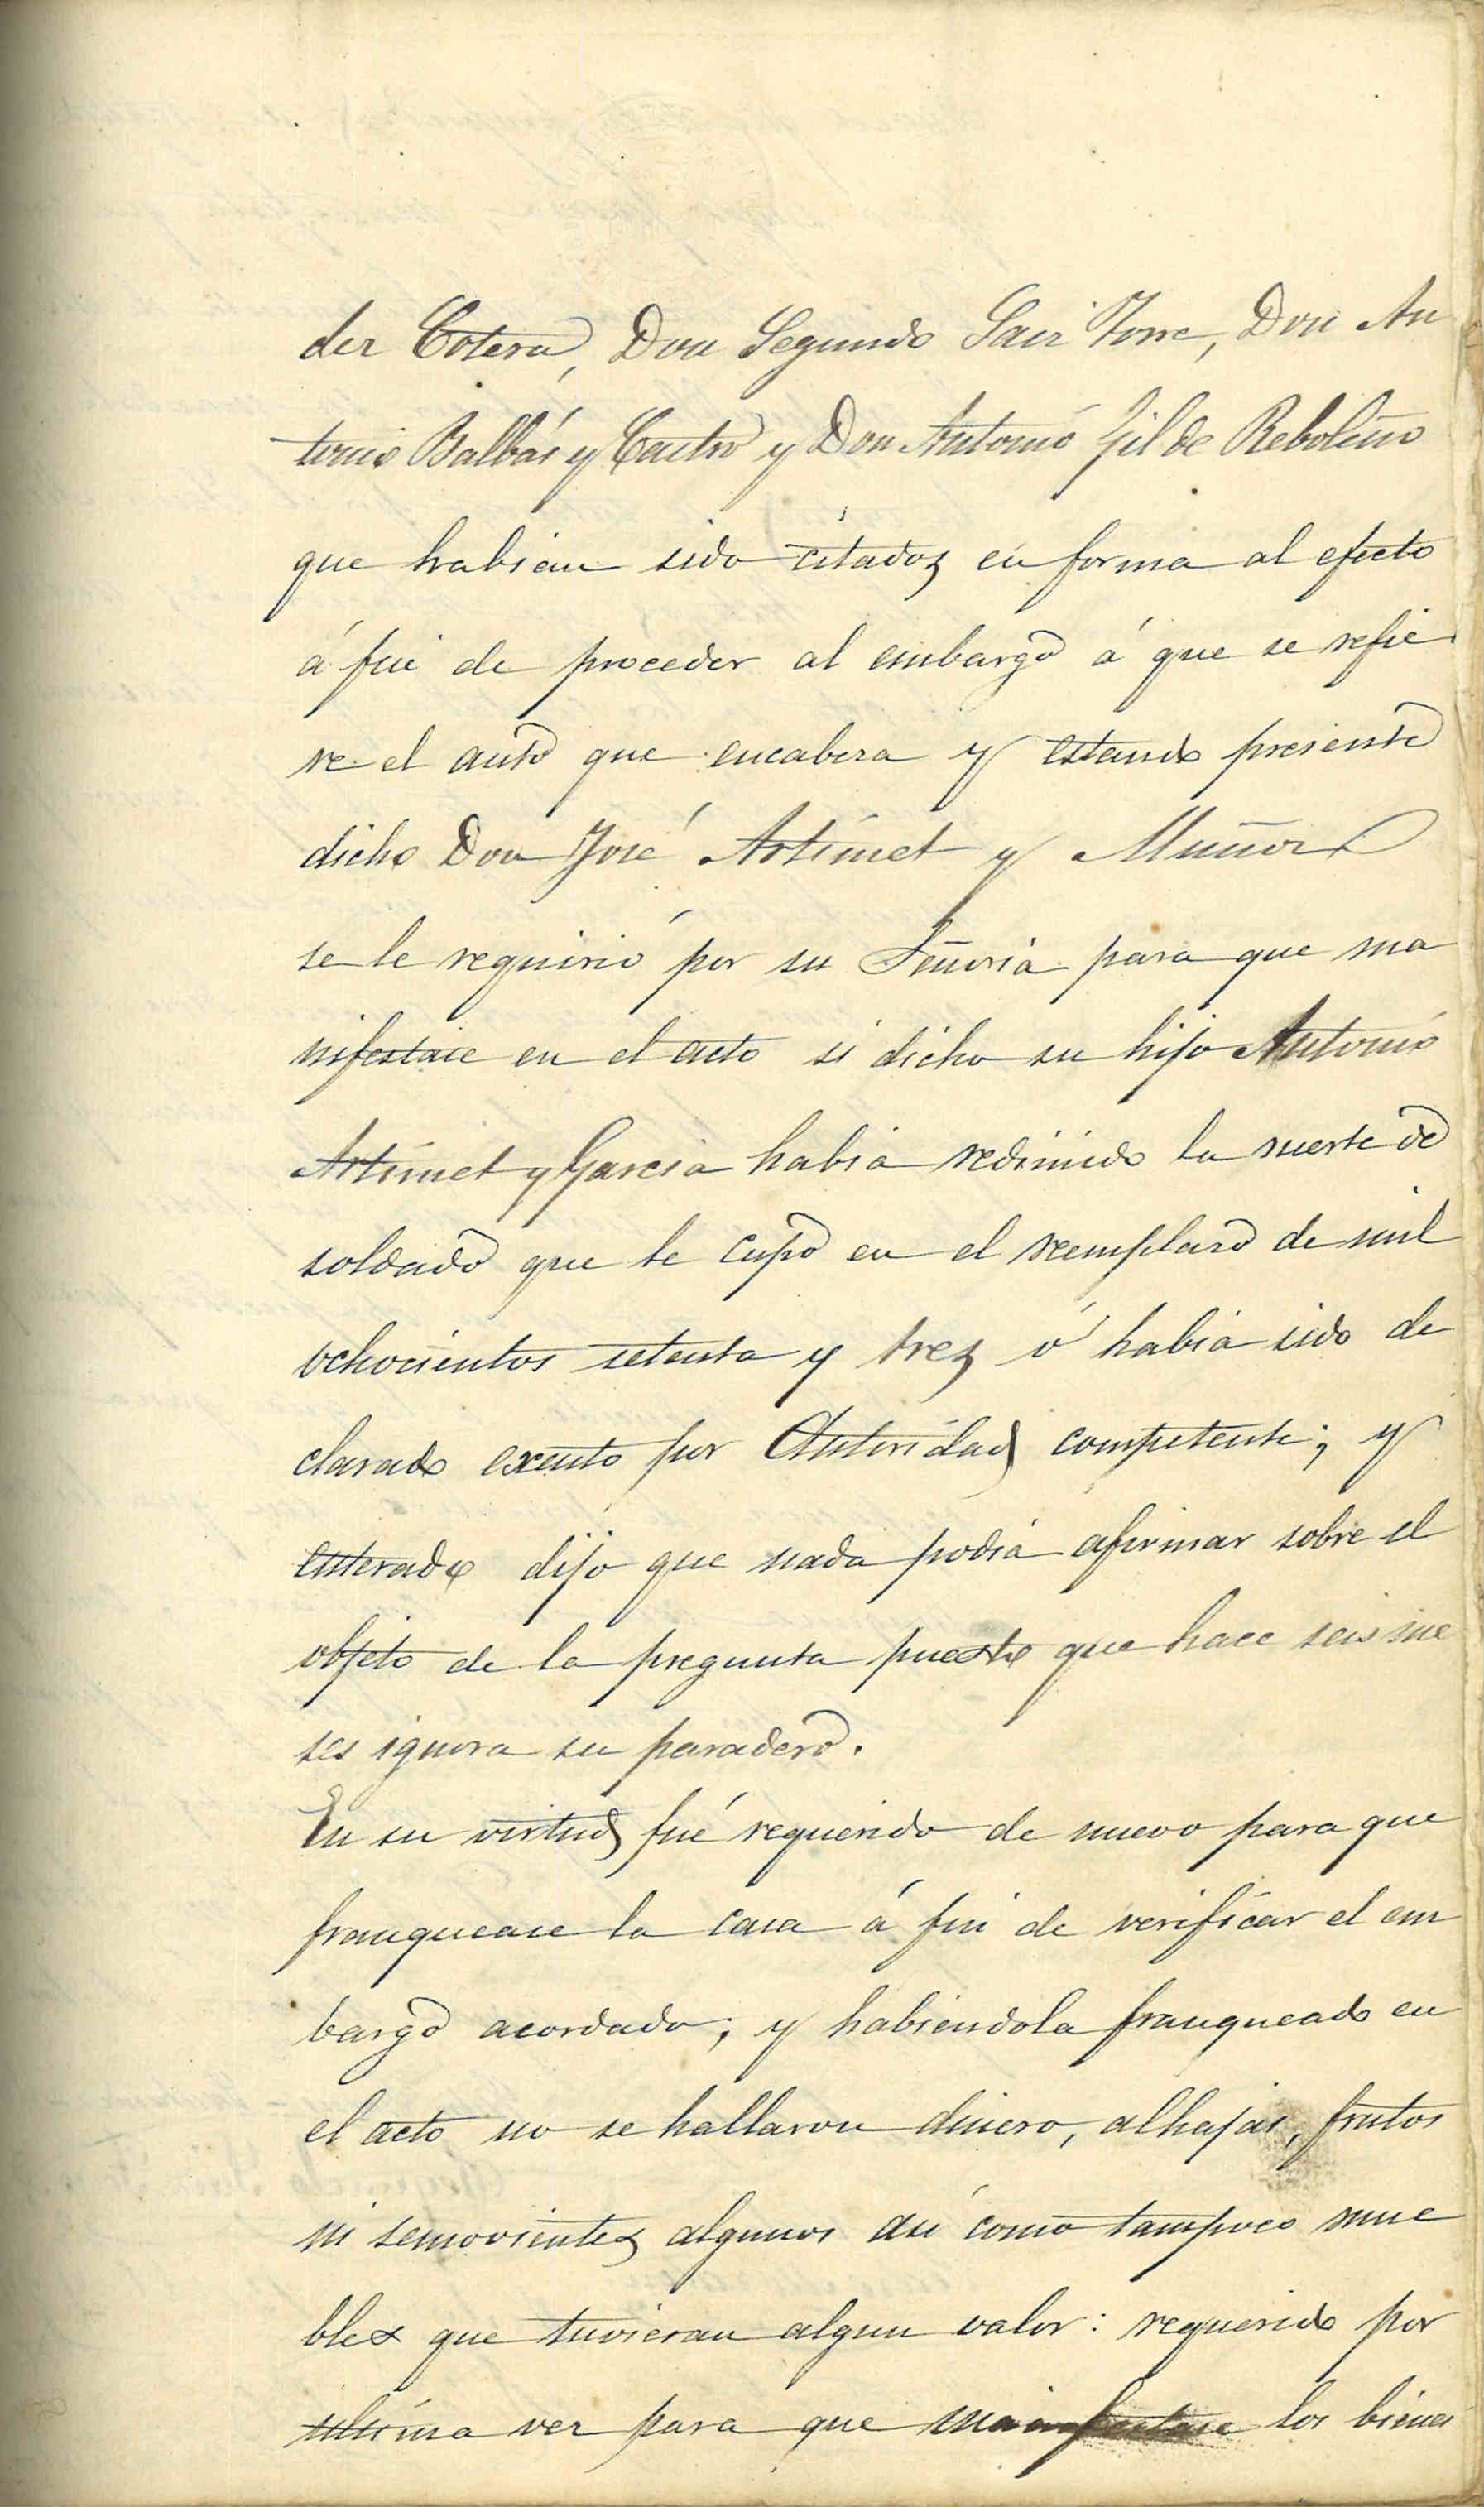 der Cotera, Don Segundo Saiz Torre, Don An
tonio Balbás y Castro y Don Antonio Gil de Reboleño
que habian sido citados en forma al efecto
á fin de proceder al embargo á que se refie
re el auto que encabeza y estando presente
dicho Don José Artímet y Muñoz
se le requirió por su Señoria para que ma
nifestase en el acto si dicho su hijo Antonio
Artímet y Garcia habia redimido la suerte de
soldado que le cupo en el reemplazo de mil
ochocientos setenta y tres ó habia sido de
clarado exento por Autoridad competente; y
enterado dijo que nada podia afirmar sobre el
objeto de la pregunta puesto que hace seis me
ses ignora su paradero.
En su virtud fué requerido de nuevo para que
franquease la casa á fin de verificar el em
bargo acordado; y habiendola franqueado en
el acto no se hallaron dinero, alhajas, frutos
ni semovientes algunos asi como tampoco mue
bles que tuvieran algun valor: requerido por
ultima vez para que manifestase los bienes